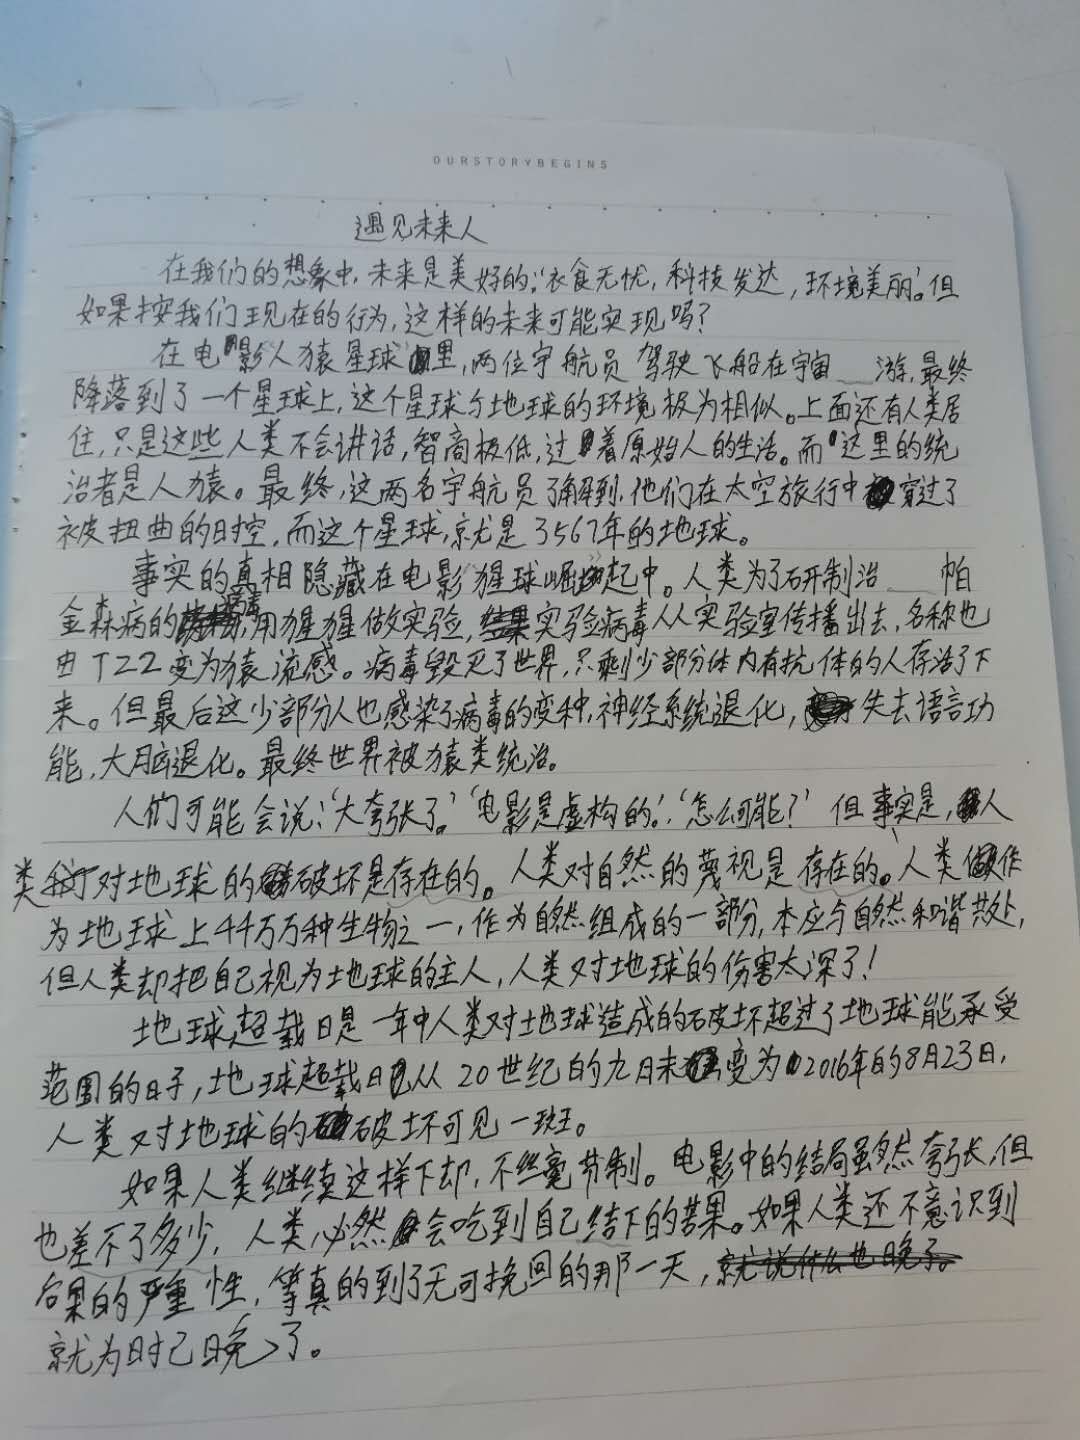 OURSTORYBEGINS
遇见未来人
在我们的想象中,未来是美好的:“衣食无忧,科技发达,环境美丽。”但
如果按我们现在的行为,这样的未来可能实现吗?
在电影人猿星球里,两位宇航员驾驶飞船在宇宙__游,最终
降落到了一个星球上,这个星球与地球的环境极为相似。上面还有人类居
住,只是这些人类不会讲话,智商极低,过着原始人的生活。而这里的统
治者是人猿。最终,这两名宇航员了解到,他们在太空旅行中穿过了
被扭曲的时空,而这个星球,就是3567年的地球。
事实的真相隐藏在电影猩球崛起中。人类为了研制治__帕
金森病的病毒,用猩猩做实验,结果实验病毒从实验室传播出去,名称也
由TZ2变为猿流感。病毒毁灭了世界,只剩少部分体内有抗体的人存活了下
来。但最后这少部分人也感染了病毒的变种,神经系统退化,失去语言功
能,大脑退化。最终世界被猿类统治。
人们可能会说:‘大夸张了。’‘电影是虚构的.’‘怎么可能?’但事实是,人
类对地球的破坏是存在的。人类对自然的蔑视是存在的。人类作
为地球上千千万万种生物之一,作为自然组成的一部分,本应与自然和谐共处,
但人类却把自己视为地球的主人,人类对地球的伤害太深了!
地球超载日是一年中人类对地球造成的破坏超过了地球能承受
范围的日子,地球超载日从20世纪的九月末变为2016年的8月23日,
人类对地球的破坏可见一斑。
如果人类继续这样下却,不丝毫节制。电影中的结局虽然夸张,但
也差不了多少,人类必然会吃到自己结下的苦果。如果人类还不意识到
后果的严重性,等真的到了无可挽回的那一天,
就为时己晚了。